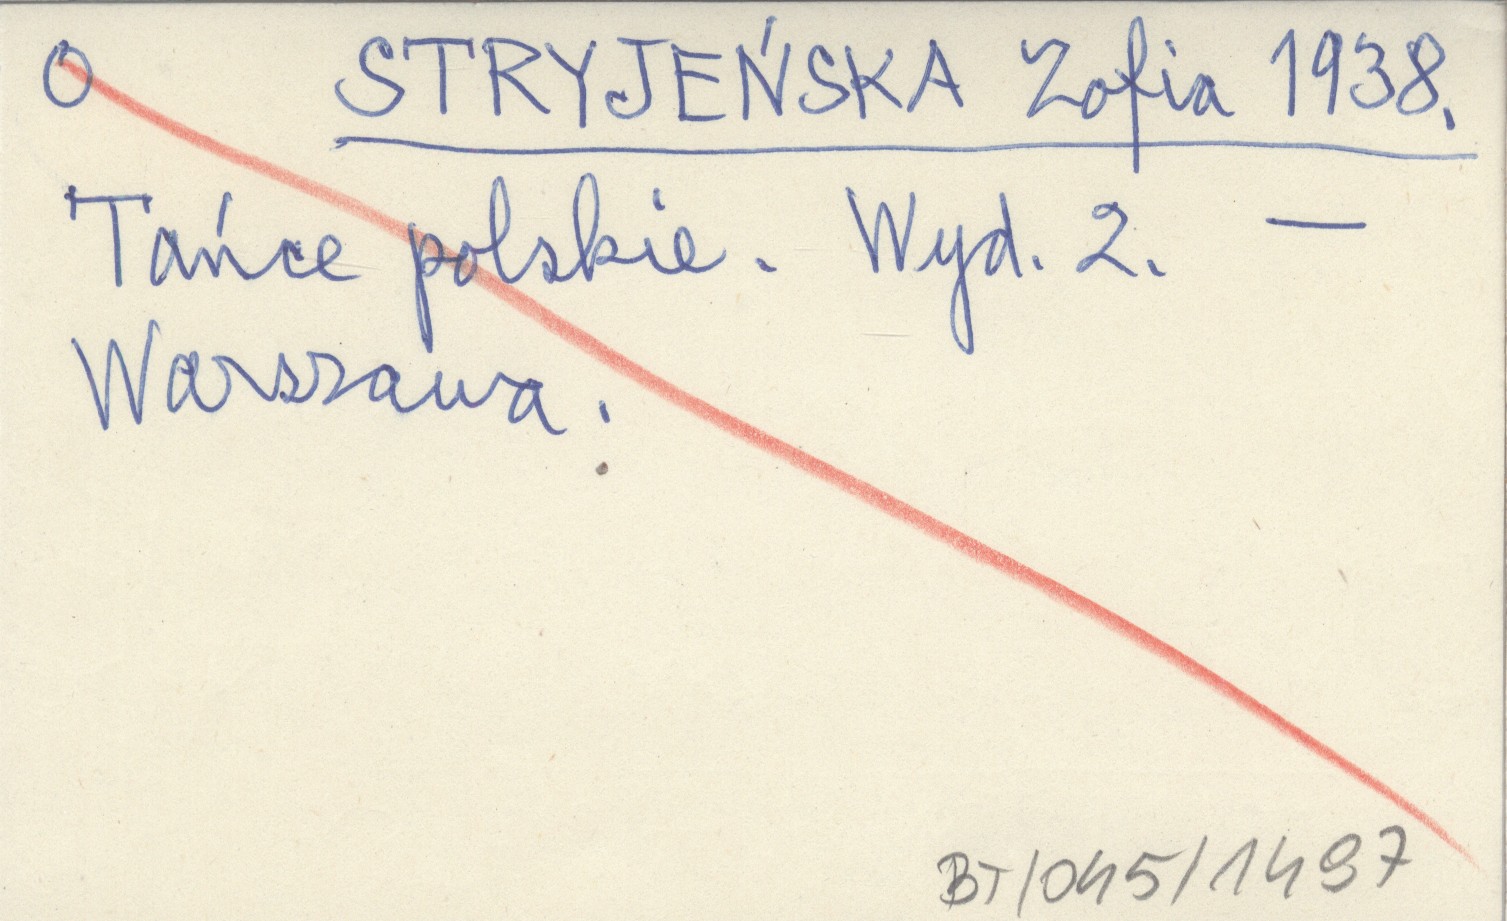 O STRYJEŃSKA Zofia 1938.
Tańce polskie. Wyd. 2. —
Warszawa.
BT/045/1497